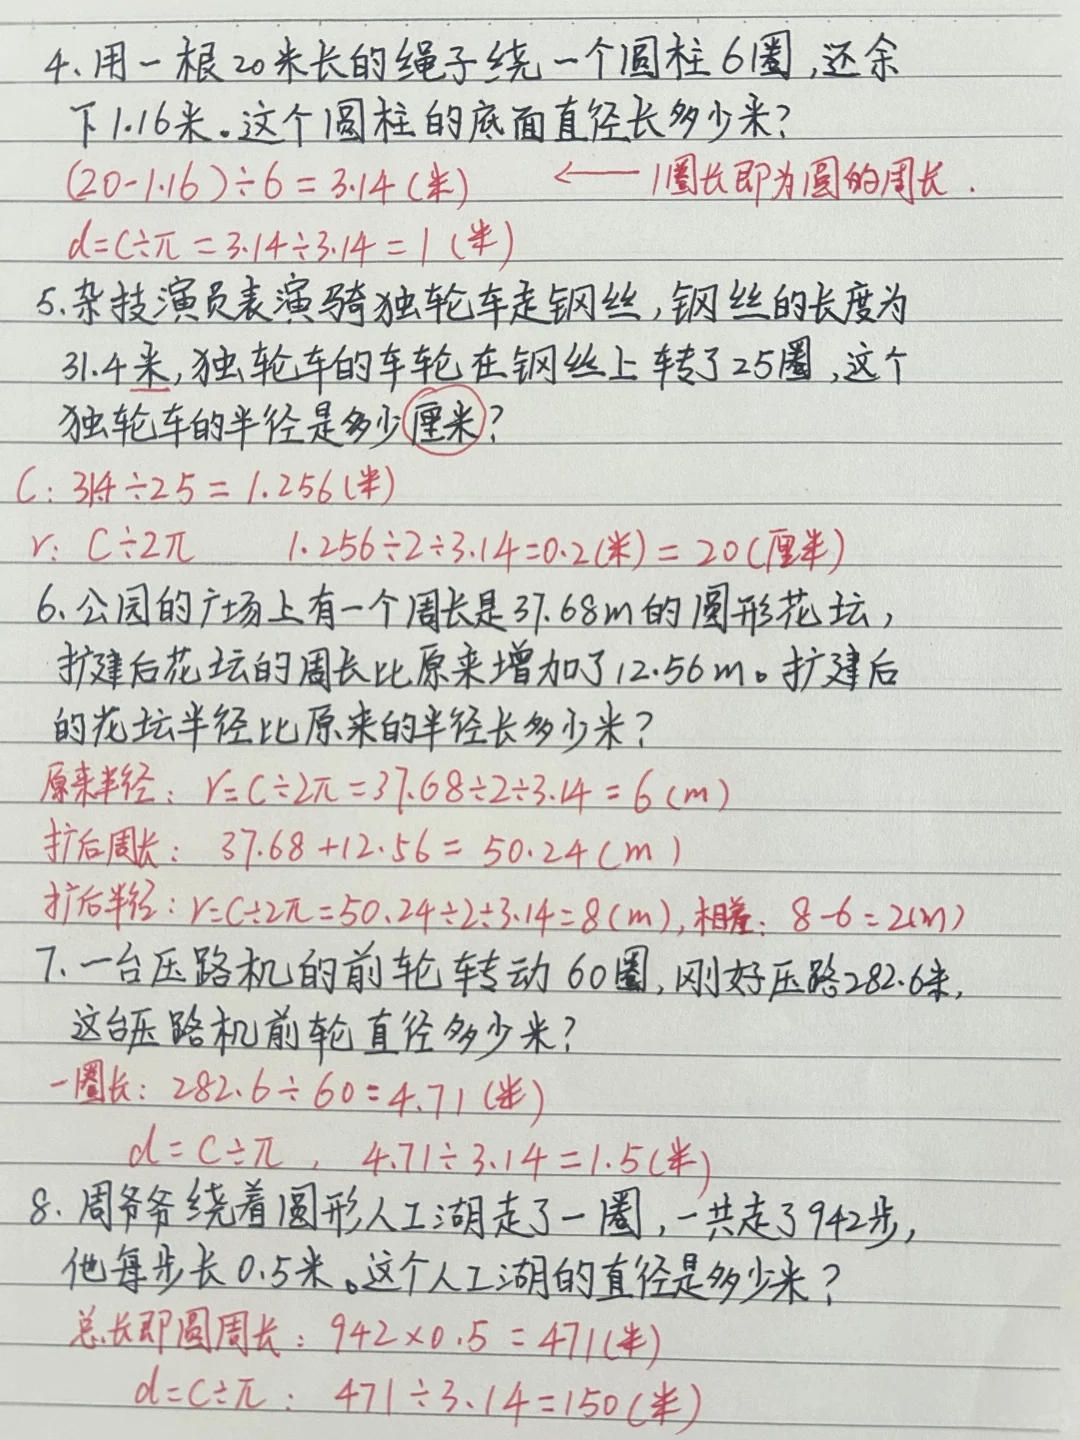 4、用一根20米长的绳子绕一个圆柱6圈,还余
下1.16米。这个圆柱的底面直径长多少米?
(20-1.16)÷6=3.14(米) ←—— 1圈长即为圆的周长.
d=C÷π=3.14÷3.14=1(米)
5、杂技演员表演骑独轮车走钢丝,钢丝的长度为
31.4米,独轮车的车轮在钢丝上转了25圈,这个
独轮车的半径是多少厘米?
C: 31.4÷25=1.256(米)
r: C÷2π 1.256÷2÷3.14=0.2(米)=20(厘米)
6、公园的广场上有一个周长是37.68m的圆形花坛,
扩建后花坛的周长比原来增加了12.56m。扩建后
的花坛半径比原来的半径长多少米?
原来半径: r=C÷2π=37.68÷2÷3.14=6(m)
扩后周长: 37.68+12.56=50.24(m)
扩后半径: r=C÷2π=50.24÷2÷3.14=8(m),相差: 8-6=2(m)
7、一台压路机的前轮转动60圈,刚好压路282.6米,
这台压路机前轮直径多少米?
一圈长: 282.6÷60=4.71(米)
d=C÷π, 4.71÷3.14=1.5(米)
8、周爷爷绕着圆形人工湖走了一圈,一共走了942步,
他每步长0.5米。这个人工湖的直径是多少米?
总长即圆周长: 942×0.5=471(米)
d=C÷π: 471÷3.14=150(米)